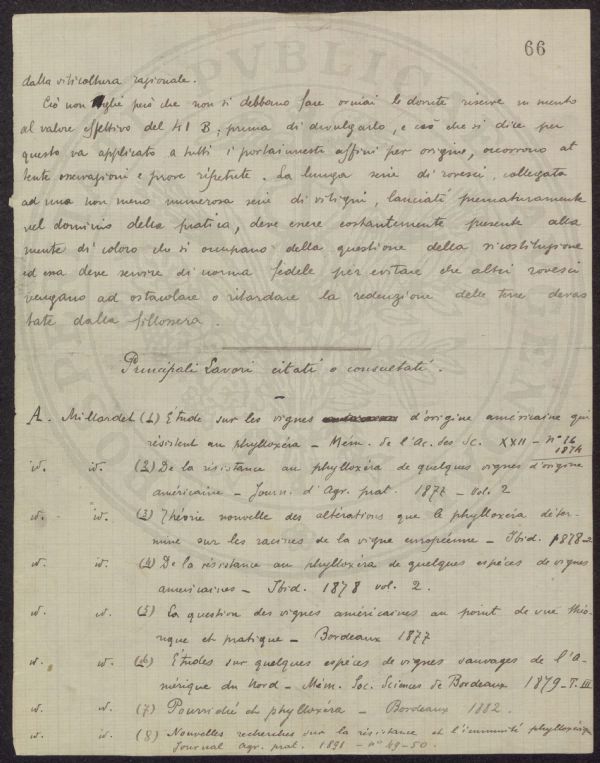 66
dalla viticoltura razionale.
Ciò non toglie però che non si debbano fare ormai le dovute riserve in merito
al valore effettivo del 41 B; prima di divulgarlo, e ciò che si dice per
questo va applicato a tutti i portainnesti affini per origine, occorrono at
tente osservazioni e prove ripetute. La lunga serie di rovesci, collegata
ad una non meno numerosa serie di vitigni, lanciati prematuramente
nel dominio della pratica, deve essere costantemente presente alla
mente di coloro che si occupano della questione della ricostituzione
ed essa deve servire di norma fedele per evitare che altri rovesci
vengano ad ostacolare o ritardare la redenzione delle terre devas
tate dalla fillossera.
Principali Lavori citati o consultati.
A. Millardet (1) Etude sur les vignes d'origine américaine qui
résistent au phylloxéra – Mém. de l'Ac. des Sc. XXII – n° 16
1874
id. id. (2) De la résistance au phylloxéra de quelques vignes d'origine
américaine – Journ. d'Agr. prat. 1877 – Vol. 2
id. id. (3) Théorie nouvelle des altérations que le phylloxéra déter-
mine sur les racines de la vigne européenne – Ibid. 1878-2
id. id. (4) De la résistance au phylloxéra de quelques espèces de vignes
americaines – Ibid. 1878 vol. 2.
id. id. (5) La question des vignes américaines au point de vue théo-
rique et pratique – Bordeaux 1877
id. id. (6) Études sur quelques espèces de vignes sauvages de l'A-
mérique du Nord – Mém. Soc. Sciences de Bordeaux 1879 – T. III
id. id. (7) Pourridié et phylloxéra – Bordeaux 1882.
id. id. (8) Nouvelles recherches sur la résistance et l'immunité phylloxérique
Journal agr. prat. 1891 – n° 49-50.